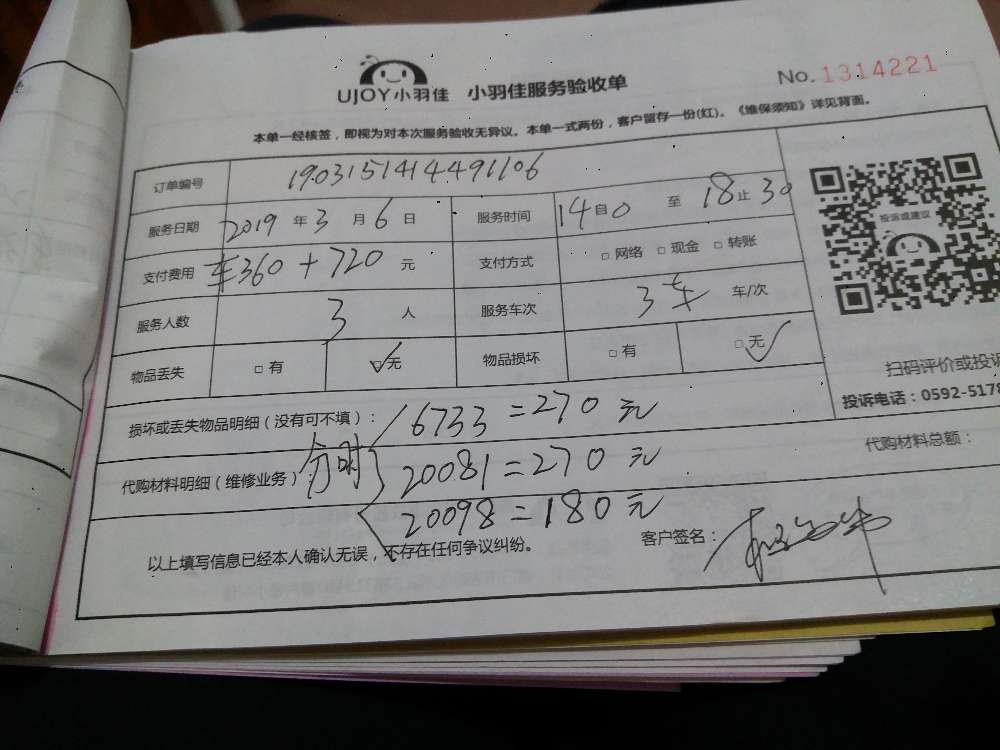 UJOY小羽佳 小羽佳服务验收单 No. 1314221
本单一经核签，即视为对本次服务验收无异议。本单一式两份，客户留存一份(红)。《维保须知》详见背面。
订单编号 1903151414491106
服务日期 2019 年 3 月 6 日 服务时间 14 自 0 至 18 止 30
投诉或建议
支付费用 车360+720 元 支付方式 □ 网络 □ 现金 □ 转账
服务人数 3 人 服务车次 3车 车/次
物品丢失 □ 有 □ 无 物品损坏 □ 有 □ 无
扫码评价或投诉
投诉电话：0592-5178
损坏或丢失物品明细（没有可不填）： 6733=270元
代购材料总额：
代购材料明细（维修业务）： 分时 20081=270元
20098=180元
以上填写信息已经本人确认无误，不存在任何争议纠纷。 客户签名：